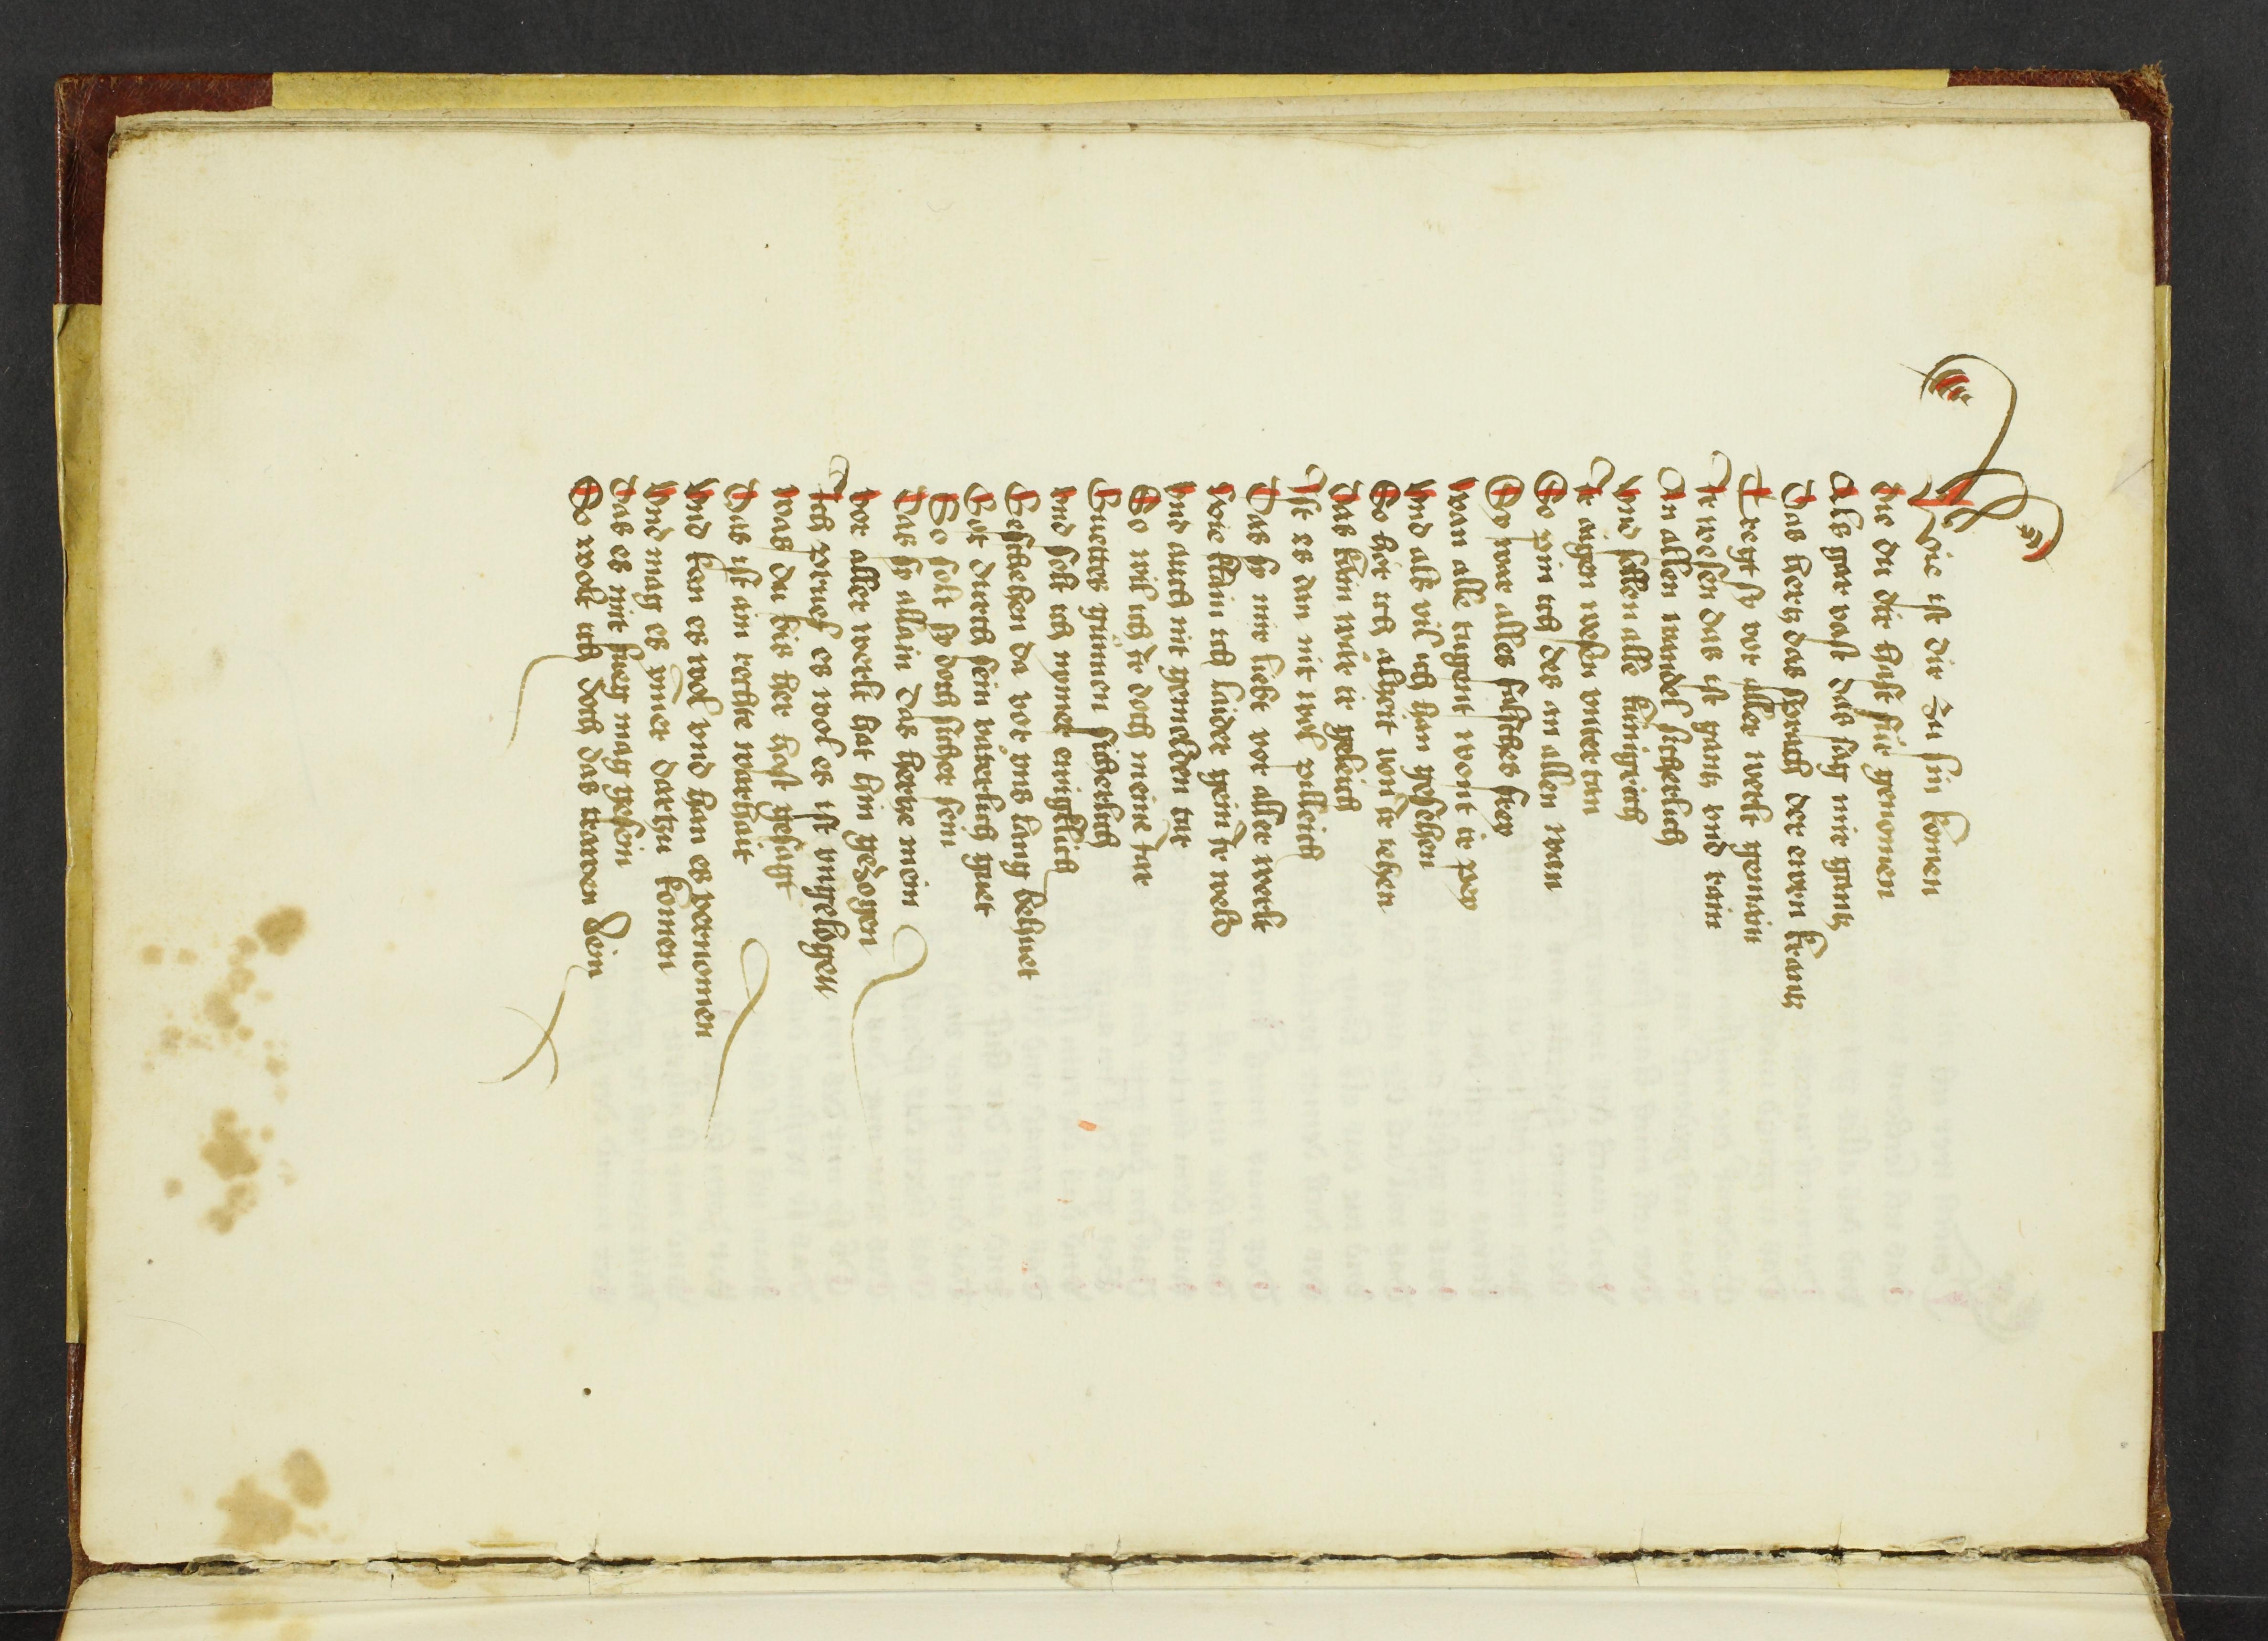 Wie ist die zu sin komen
die du dir hast für genomen
Als gar vast das sag mir gantz
Das hertz das sprach der eren krantz
Tregt sy vor aller werlt gemain
Ir wesen das ist gantz vnd rain
An allen wandel sicherlich
vnd sollen alle künigrich
Ir aigen wesen vntertan
So pin ich des an allen wan
Sy wer alles falsches frey
wan alle tugent wont ir pey
vnd als vil ich han gesehen
So hör ich alzeit von ir iehen
Das kain wär ir geleich
Ist es dan nit wol pilleich
Das sy mir liebt vor aller werlt
wie klain ich laider gein ir meld
vnd auch nit gemelden tar
So wil ich ir doch meine iar
Guettes günnen sicherlich
vnd solt ich nymer ewigklich
Geschehen da vor vns lang behuet
Got durch sein väterlich guet
So solt sy doch sicher sein
Das sy allain das hertze mein
vor aller werlt hat hin gezogen
Ich pruef es wol es ist vngelogen
was du bis her hast gesagt
Das ist ain rechte warhait
vnd kan es wol vnd han es vernomen
vnd mag es ymer dartzu komen
Das es mit fueg mag gesein
So wolt ich doch das trawren dein